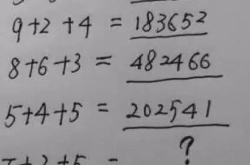 9+2+4 = 183652
8+6+3 = 482466
5+4+5 = 202541
?